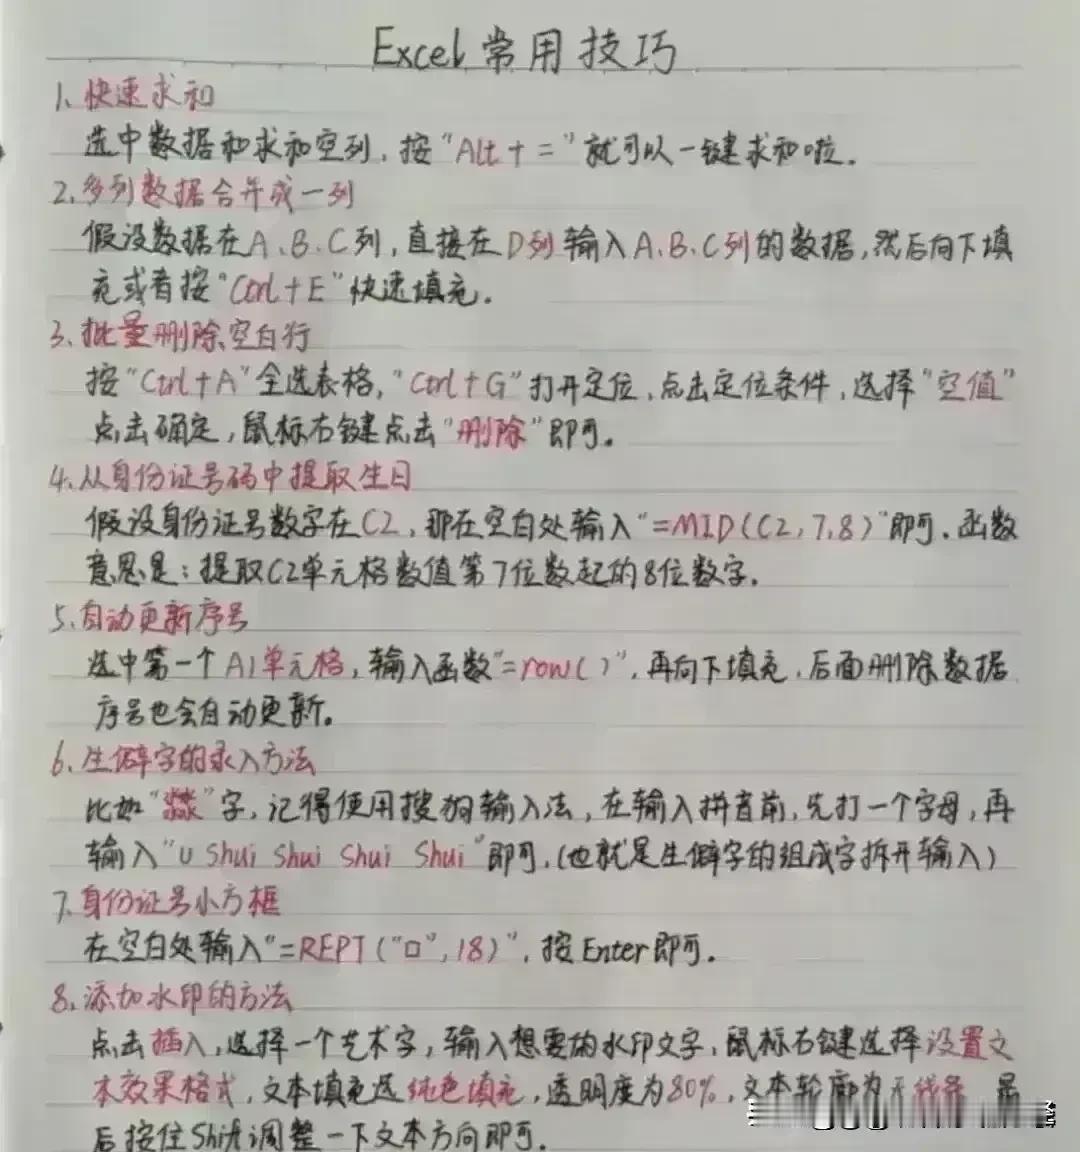 Excel常用技巧
1、快速求和
选中数据和求和空列，按“Alt＋=”就可以一键求和啦。
2、多列数据合并成一列
假设数据在A、B、C列，直接在D列输入A、B、C列的数据，然后向下填
充或者按“Ctrl＋E”快速填充。
3、批量删除空白行
按“Ctrl＋A”全选表格，“Ctrl＋G”打开定位，点击定位条件，选择“空值”
点击确定，鼠标右键点击“删除”即可。
4、从身份证号码中提取生日
假设身份证号数字在C2，那在空白处输入“=MID(C2,7,8)”即可。函数
意思是：提取C2单元格数值第7位数起的8位数字。
5、自动更新序号
选中第一个A1单元格，输入函数“=row()”，再向下填充，后面删除数据
序号也会自动更新。
6、生僻字的录入方法
比如“㵘”字，记得使用搜狗输入法，在输入拼音前，先打一个字母，再
输入“U Shui Shui Shui Shui”即可，(也就是生僻字的组成字拆开输入)
7、身份证号小方框
在空白处输入“=REPT("□",18)”，按Enter即可。
8、添加水印的方法
点击插入，选择一个艺术字，输入想要的水印文字，鼠标右键选择设置文
本效果格式，文本填充选纯色填充，透明度为80%，文本轮廓为无线条，最
后按住Shift调整一下文本方向即可。